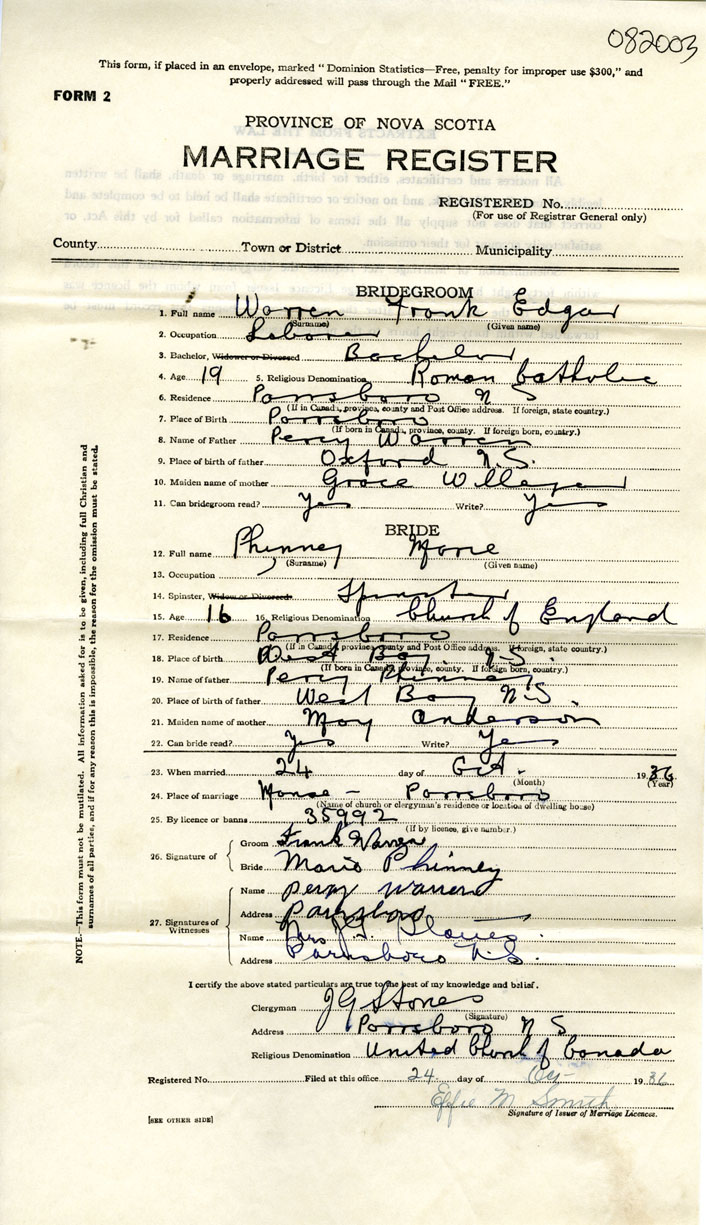 082003
This form, if placed in an envelope, marked "Dominion Statistics—Free, penalty for improper use $300," and
properly addressed will pass through the Mail "FREE."
FORM 2
PROVINCE OF NOVA SCOTIA
MARRIAGE REGISTER
REGISTERED No.
(For use of Registrar General only)
County Town or District Municipality
BRIDEGROOM
1. Full name Warren Frank Edgar
(Surname) (Given name)
2. Occupation Laborer
3. Bachelor, Widower or Divorced Bachelor
4. Age 19 5. Religious Denomination Roman Catholic
6. Residence Parrsboro N S
(If in Canada, province, county and Post Office address. If foreign, state country.)
7. Place of Birth Parrsboro
(If born in Canada, province, county. If foreign born, country.)
8. Name of Father Percy Warren
9. Place of birth of father Oxford N.S.
10. Maiden name of mother Grace
11. Can bridegroom read? Yes Write? Yes
BRIDE
12. Full name Phinney Marie
(Surname) (Given name)
13. Occupation
14. Spinster, Widow or Divorced Spinster
15. Age 16 16. Religious Denomination Church of England
17. Residence Parrsboro
(If in Canada, province, county and Post Office address. If foreign, state country.)
18. Place of birth West Bay N.S.
(If born in Canada, province, county. If foreign born, country.)
19. Name of father Percy Phinney
20. Place of birth of father West Bay N.S.
21. Maiden name of mother May Anderson
22. Can bride read? Yes Write? Yes
23. When married 24 day of Oct. 1936
(Month) (Year)
24. Place of marriage Manse - Parrsboro
(Name of church or clergyman's residence or location of dwelling house)
25. By licence or banns 35992
(If by licence, give number.)
26. Signature of
Groom Frank Warren
Bride Marie Phinney
27. Signatures of Witnesses
Name Percy Warren
Address Parrsboro
Name Mrs J.G. Stones
Address Parrsboro N.S.
I certify the above stated particulars are true to the best of my knowledge and belief.
Clergyman J G Stones
(Signature)
Address Parrsboro N S
Religious Denomination United Church of Canada
Registered No. Filed at this office 24 day of Oct 1936
Effie M Smith
Signature of Issuer of Marriage Licences.
[SEE OTHER SIDE]
NOTE.—This form must not be mutilated. All information asked for is to be given, including full Christian and
surnames of all parties, and if for any reason this is impossible, the reason for the omission must be stated.